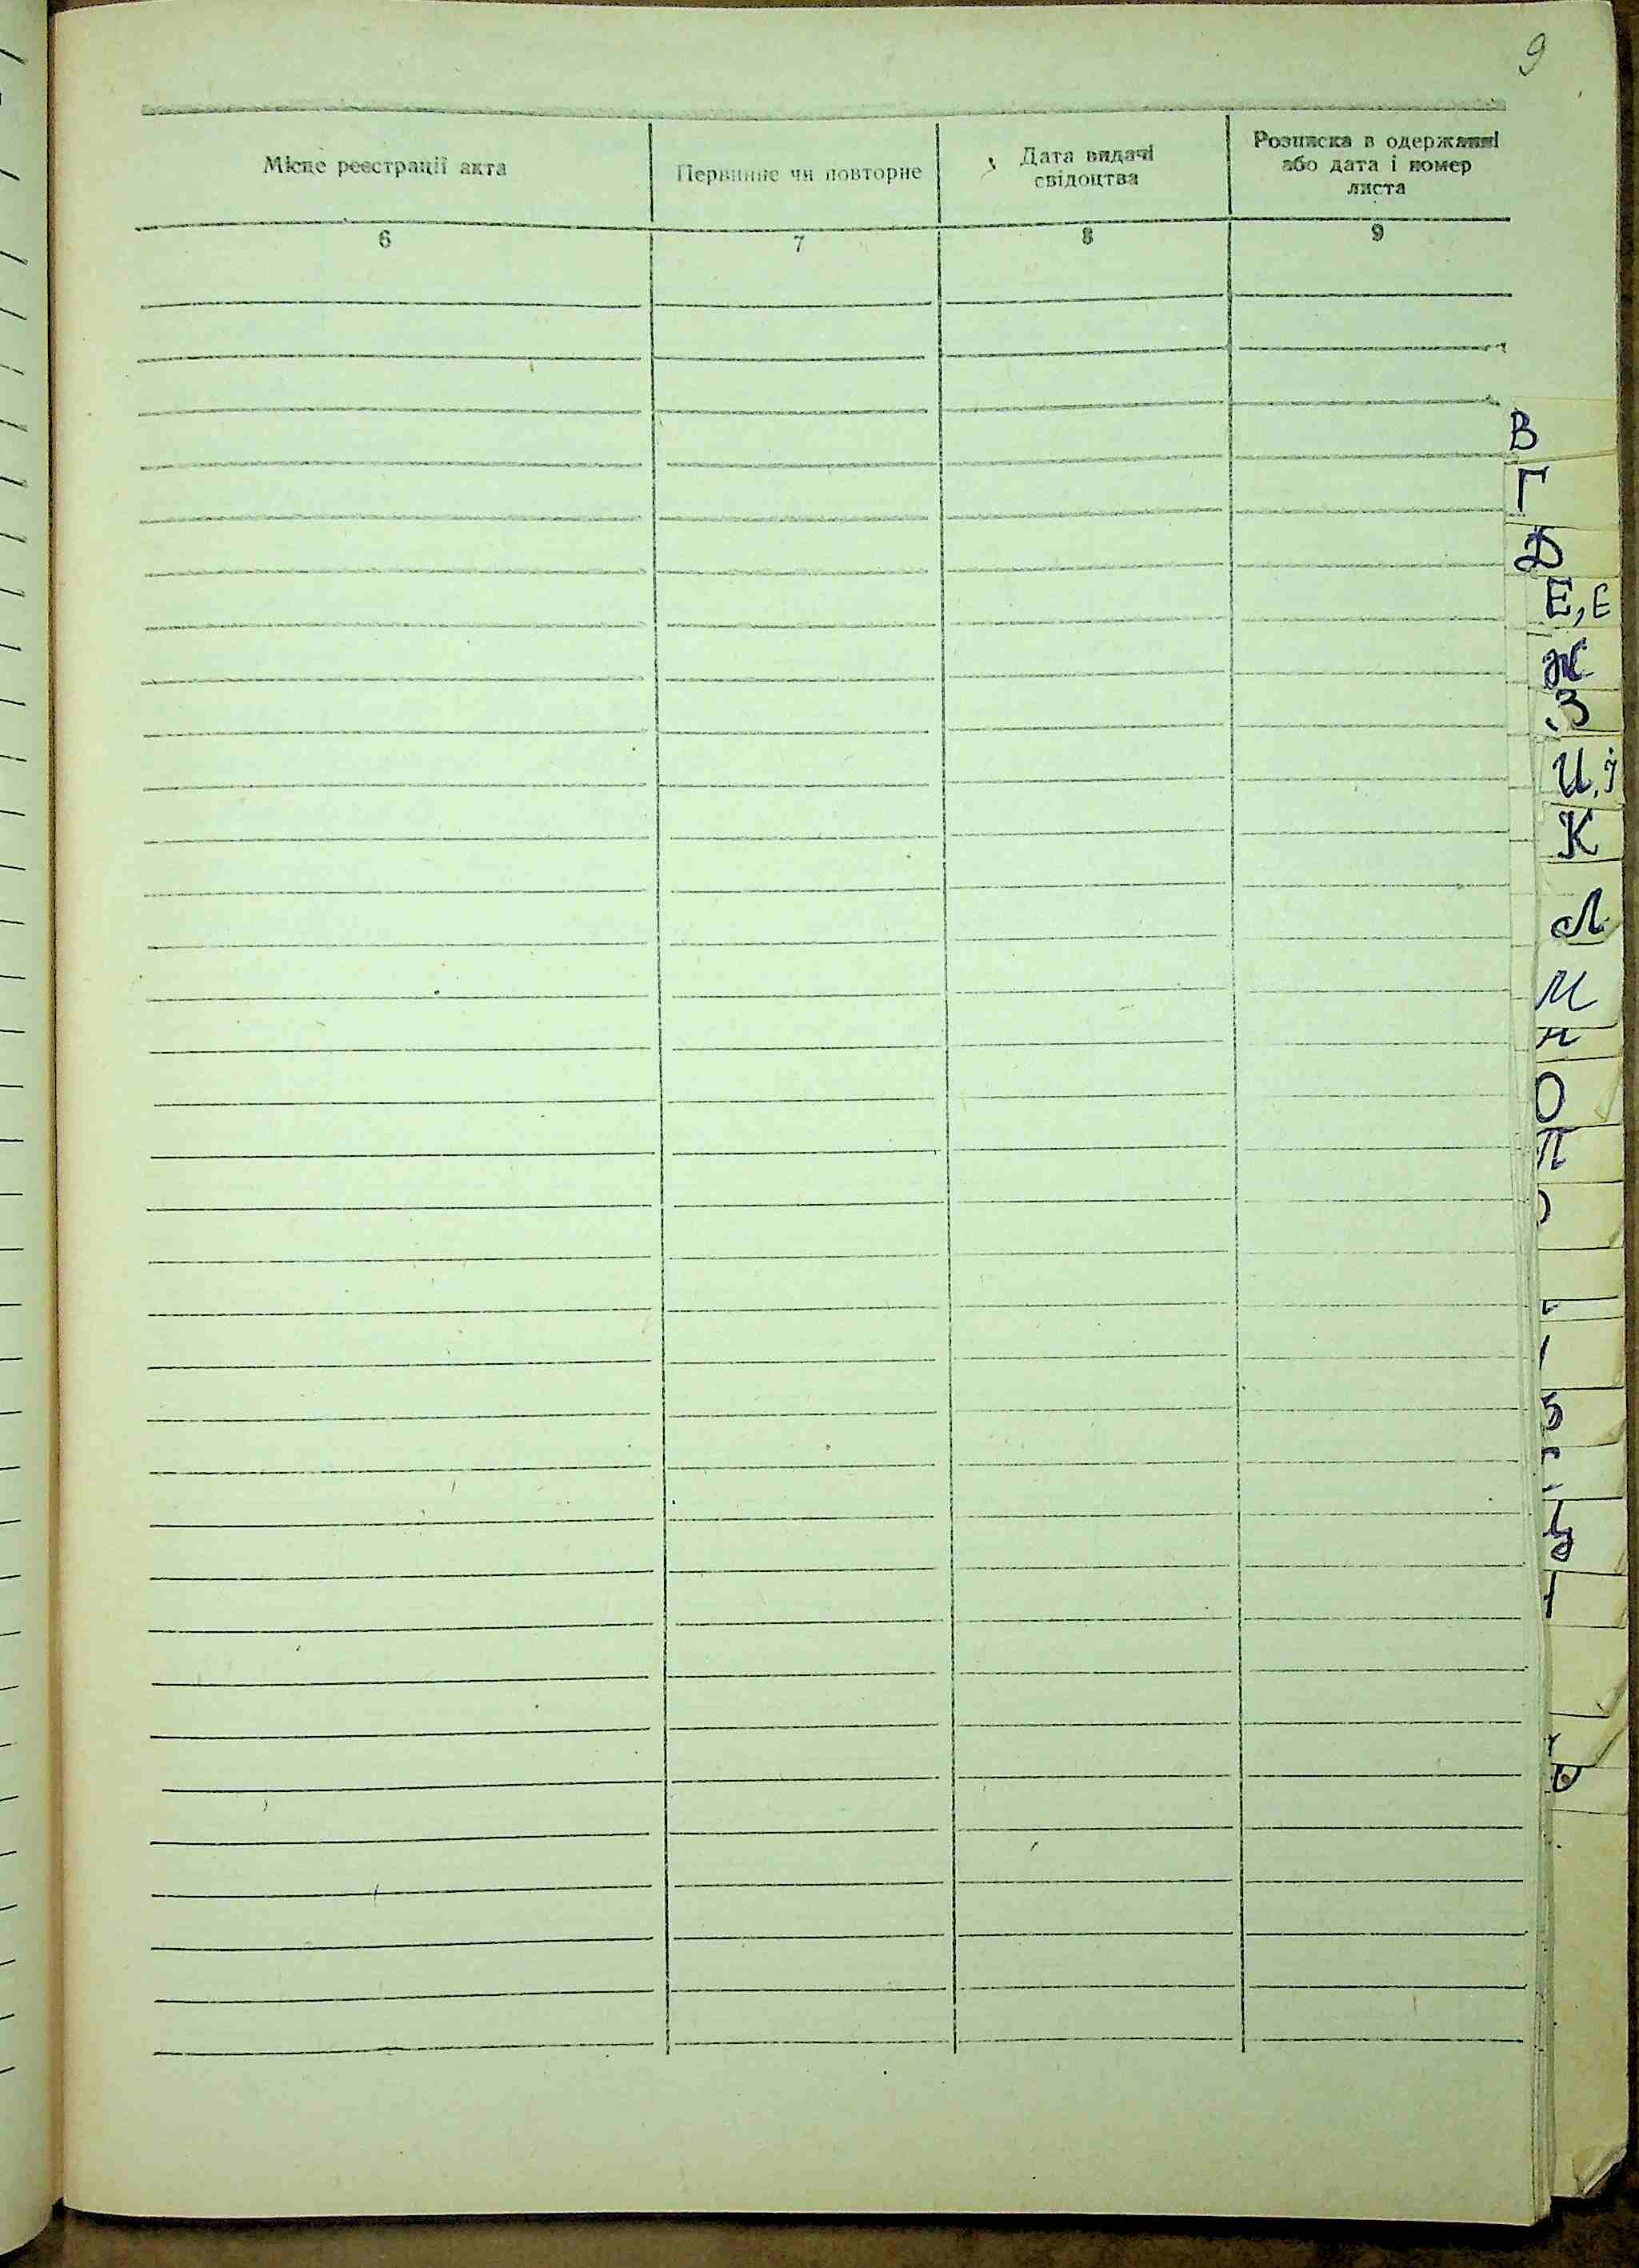 9
Місце реєстрації акта
Первинне чи повторне
Дата видачі
свідоцтва
Розписка в одержанні
або дата і номер
листа
6 7 8 9
В
Г
Д
Е, Є
Ж
З
И, І
К
Л
М
Н
О
П